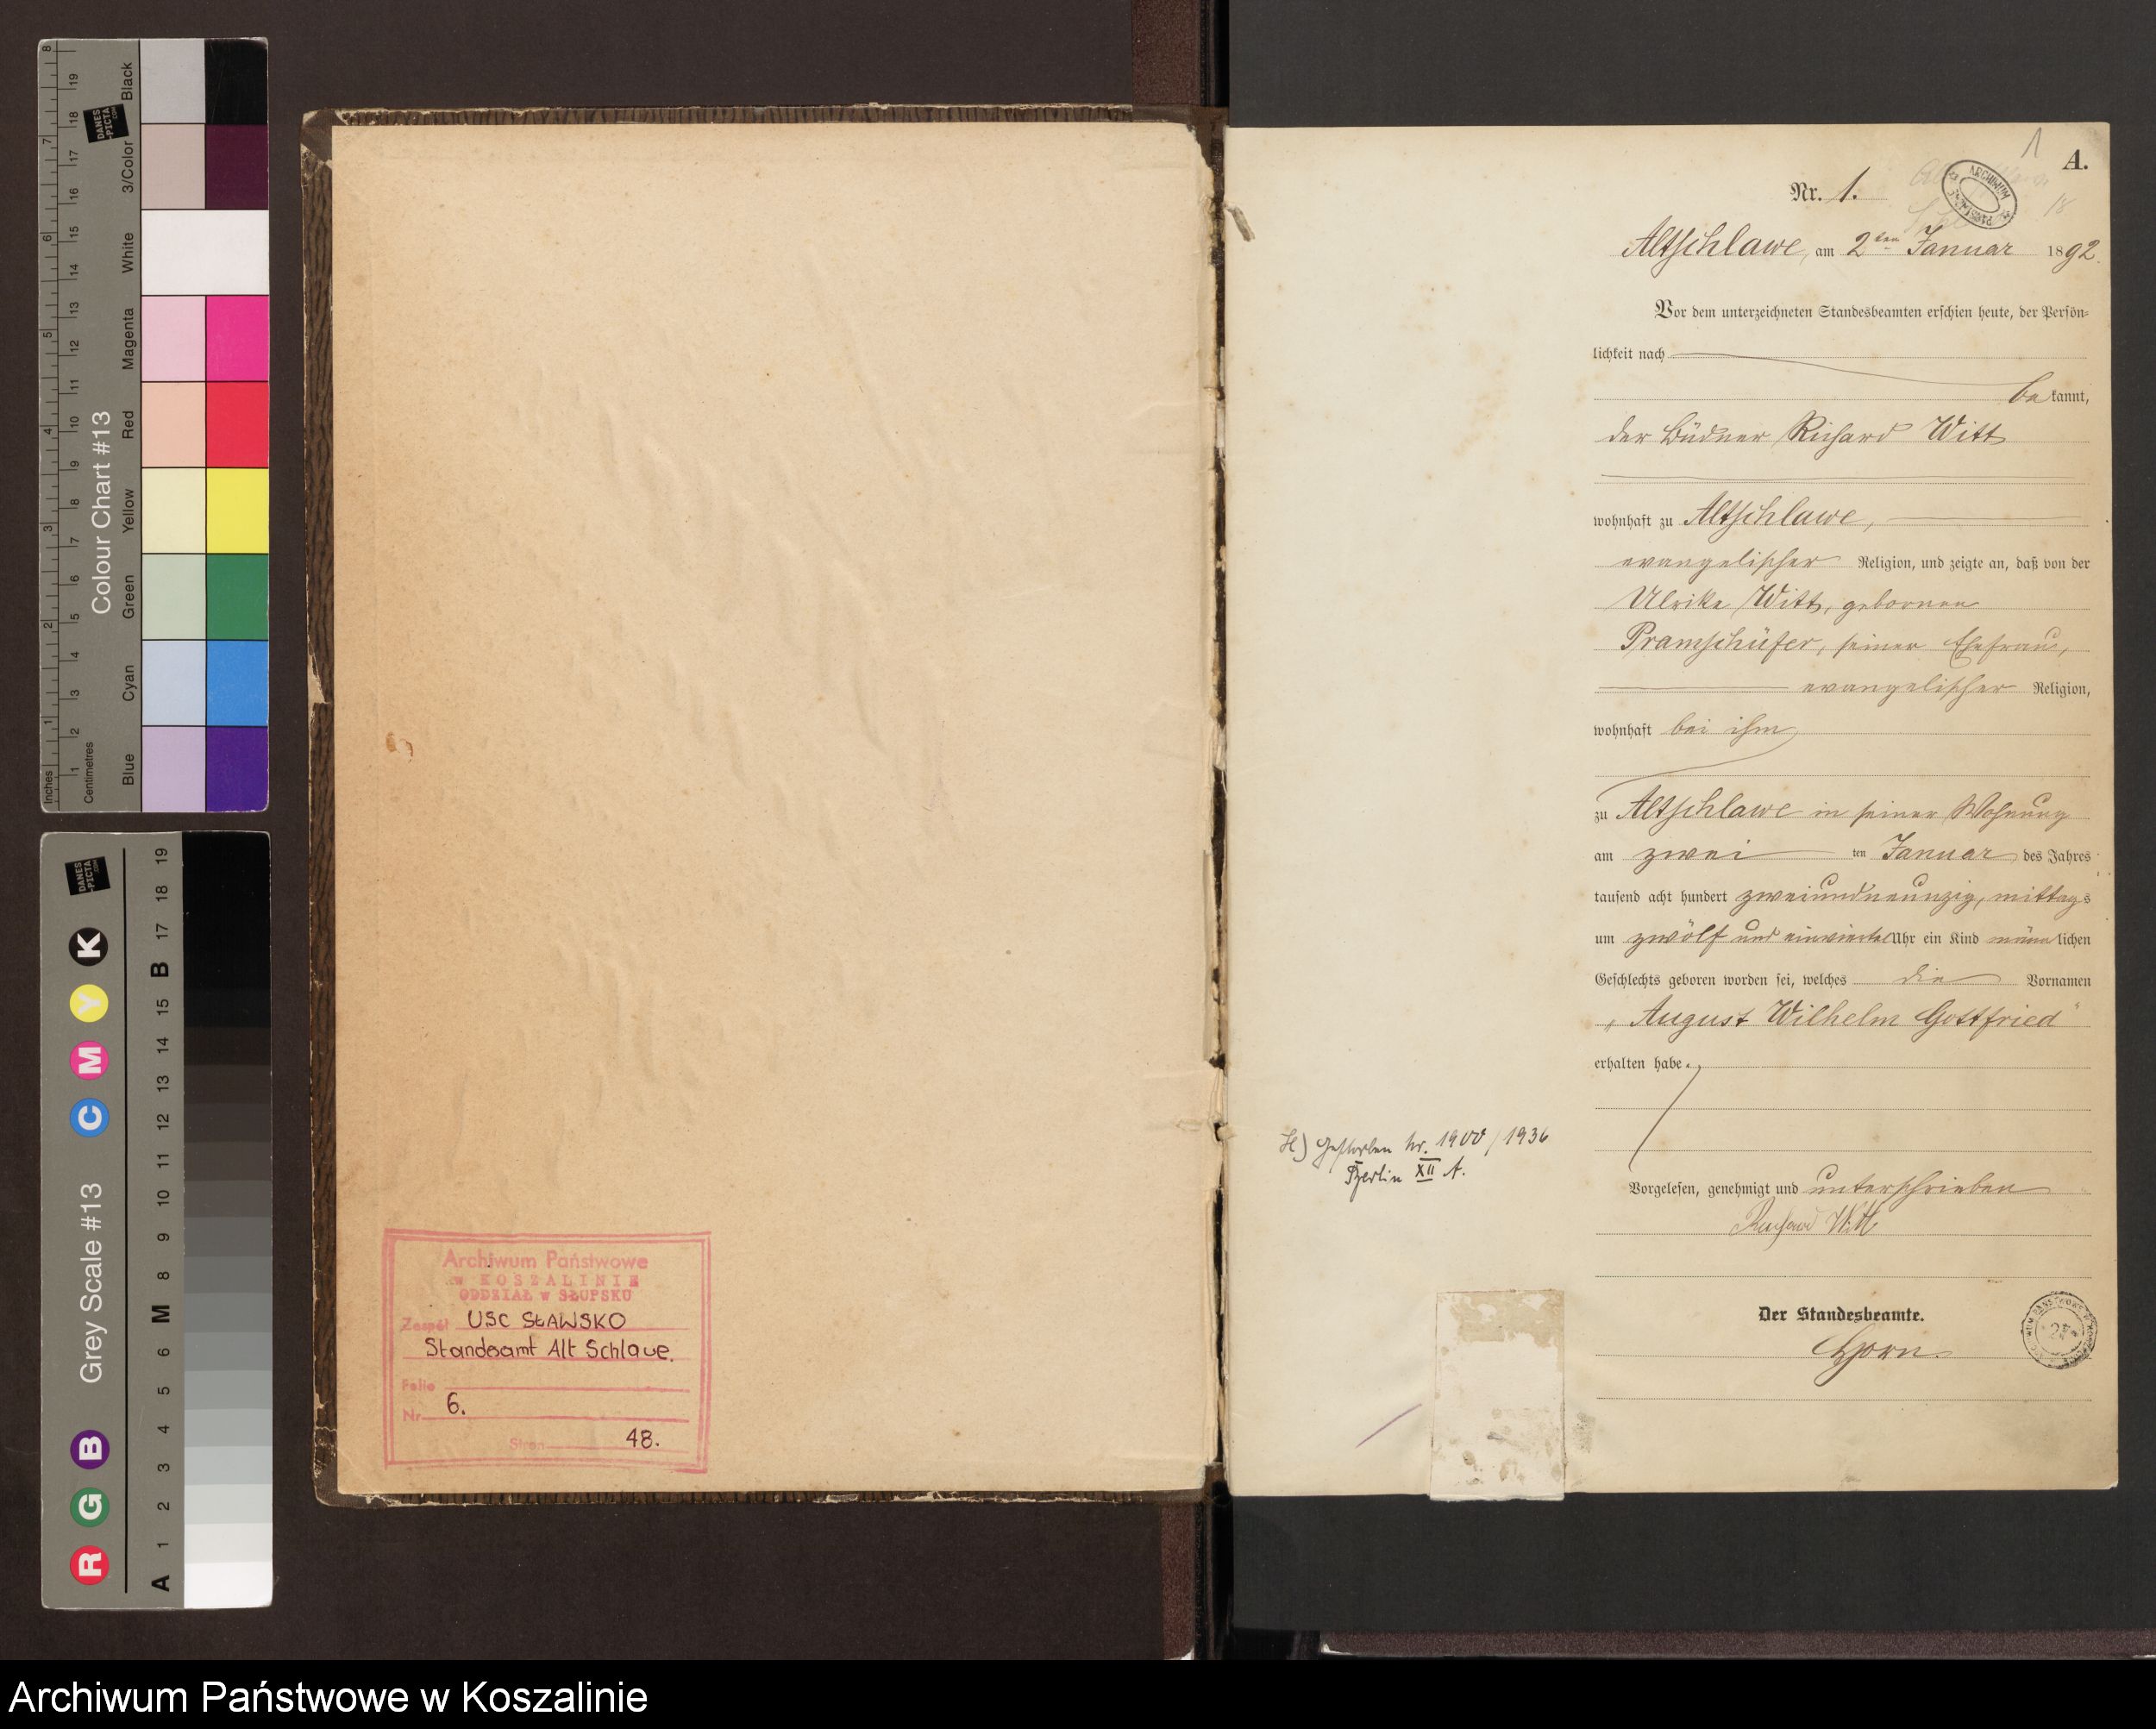 Colour Chart #13
Black
3/Color
White
Magenta
Red
Yellow
Green
Cyan
Blue
Inches
Centimetres
DANES
PICTA
.COM
Grey Scale #13
R G B C M Y K
A 1 2 3 4 5 6 M 8 9 10 11 12 13 14 15 B 17 18 19
Archiwum Państwowe
w KOSZALINIE
ODDZIAŁ w SŁUPSKU
Zespół USC SŁAWSKO
Standesamt Alt Schlawe.
Folio
Nr 6.
Stron 48.
1
A.
Nr. 1.
Altschlawe, am 2ten Januar 1892.
Vor dem unterzeichneten Standesbeamten erschien heute, der Persön-
lichkeit nach
bekannt,
der Büdner Richard Witt
wohnhaft zu Altschlawe,
evangelischer Religion, und zeigte an, daß von der
Ulrike Witt, geborenen
Pramschüfer, seiner Ehefrau,
evangelischer Religion,
wohnhaft bei ihm
zu Altschlawe in seiner Wohnung
am zwei ten Januar des Jahres
tausend acht hundert zweiundneunzig, mittags
um zwölf und einviertel Uhr ein Kind männlichen
Geschlechts geboren worden sei, welches die Vornamen
„August Wilhelm Gottfried"
erhalten habe.
Gestorben Nr. 1900/1936
Berlin XII A.
Vorgelesen, genehmigt und unterschrieben
Richard Witt
Der Standesbeamte.
Archiwum Państwowe w Koszalinie